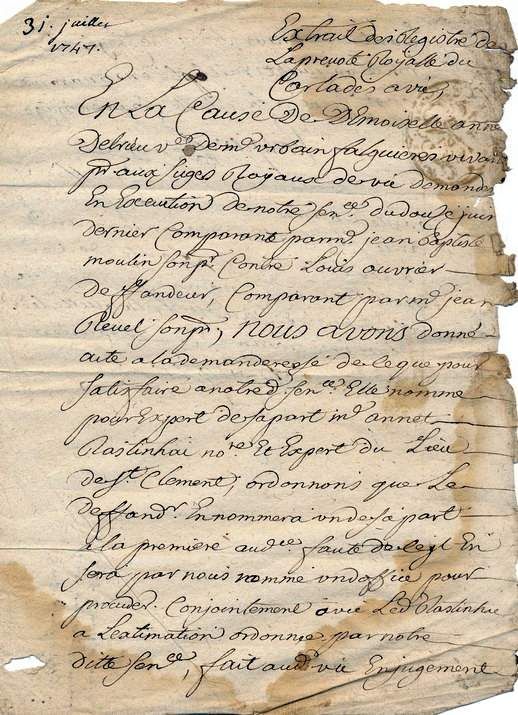 31. juillet
1747.
Extrait des Registre de
La prevoté Royalle du
Carladés a vic,
En La Cause De Demoiselle anne
Debrieu v.e de m.e urbain falquieres vivan
pr. aux sieges Royaux de vic Demande
En Execution de notre sen.ce du douse juin
dernier Comparant par m.e jean baptiste
moulin son pr. Contre Louis ouvrier
deffandeur, Comparant par m.e jean
Revel son pr., nous avons donné
acte a la demanderesse de Ce que pour
satisfaire a notre d. sen.ce Elle nomme
pour Expert de sa part m.e annet
Rastinhac no.re Et Expert du Lieu
de S.t Clement; ordonnons que Le
deffand.r En nommera un de sa part
a la premiere aud.ce faute de Ce, il En
sera par nous nommé un doffice pour
proceder Conjointement avec Led. Rastinhac
a Lestimation ordonnée par notre
ditte sen.ce, fait aud. vic En jugement